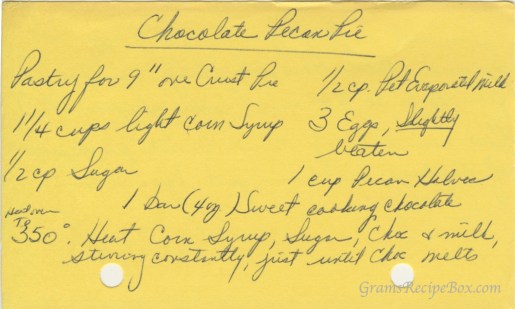 Chocolate Pecan Pie
Pastry for 9" one Crust Pie
1/2 cp. Pet Evaporated Milk
1 1/4 cups light corn Syrup
3 Eggs, Slightly
beaten
1/2 cp Sugar
1 cup Pecan Halves
1 Bar (4 oz) Sweet cooking chocolate
Heat oven
To
350°. Heat Corn Syrup, Sugar, Choc & milk,
stirring constantly, just until Choc melts
GramsRecipeBox.com